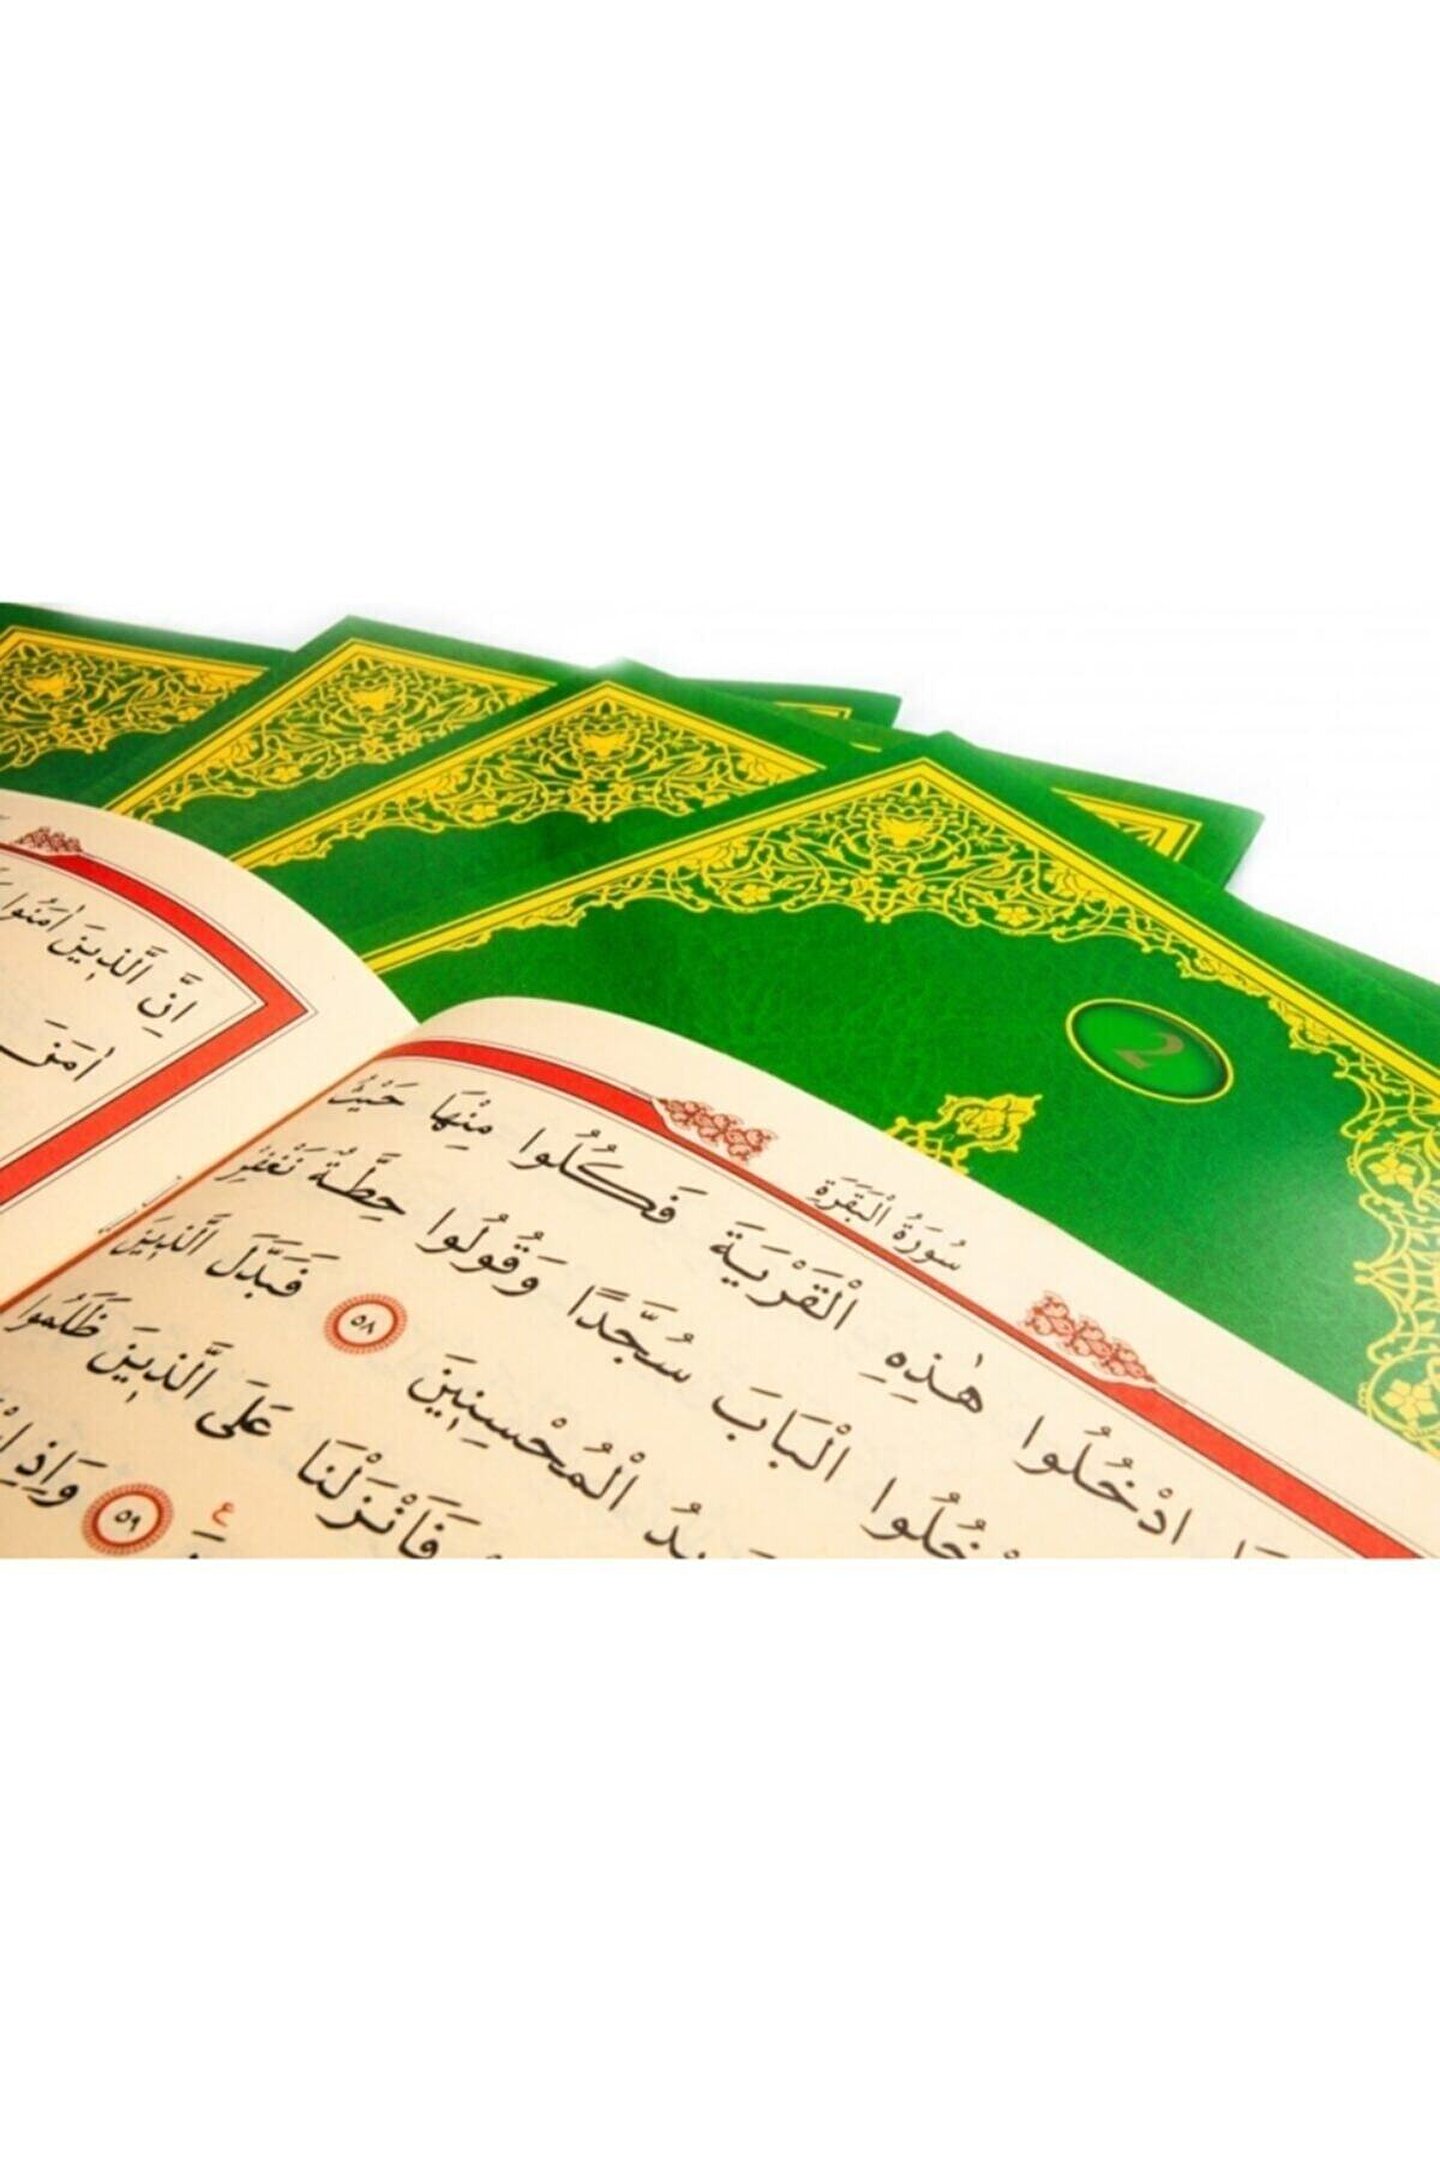 2
سُورَةُ الْبَقَرَةِ
ادْخُلُوا هٰذِهِ الْقَرْيَةَ فَكُلُوا مِنْهَا حَيْثُ
الْبَابَ سُجَّدًا وَقُولُوا حِطَّةٌ نَغْفِرْ
الْمُحْسِنِينَ ٥٨ فَبَدَّلَ الَّذِينَ
فَاَنْزَلْنَا عَلَى الَّذِينَ ظَلَمُوا
ع ٥٩ وَاِذِ
اِنَّ الَّذِينَ اٰمَنُوا
اٰمَنَ